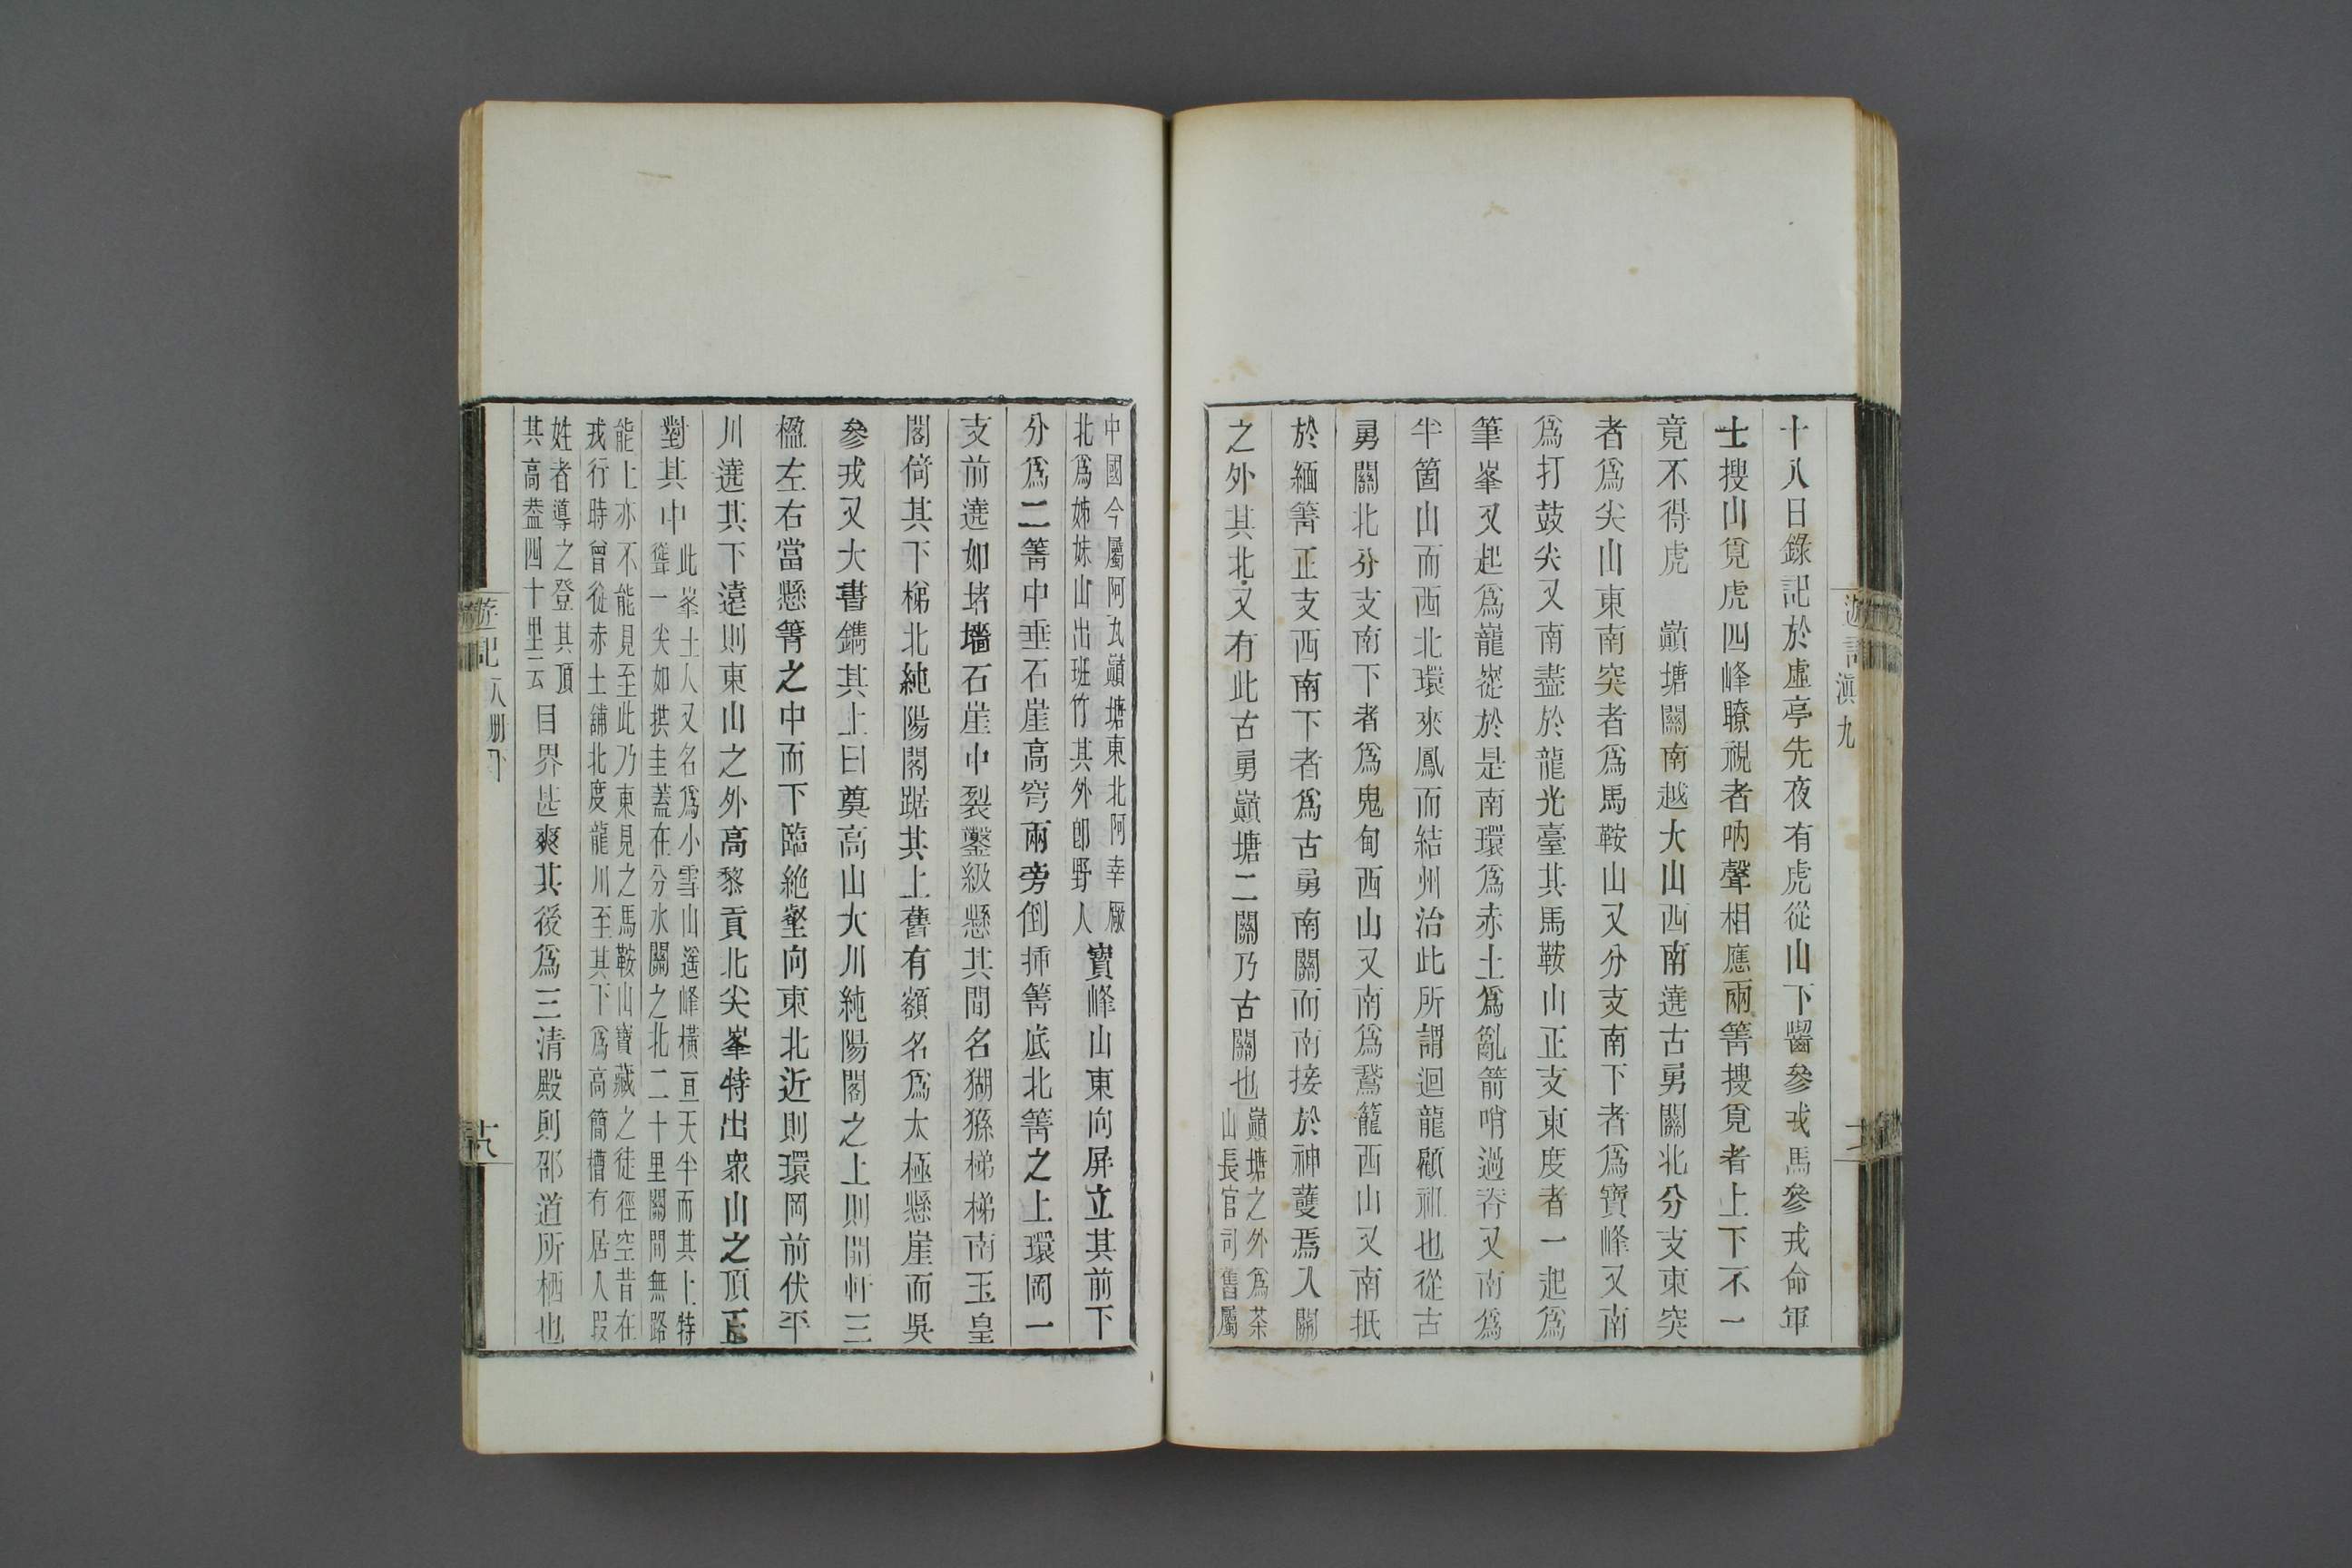 遊記滇九
十八日錄記於虛亭先夜有虎從山下齧參戎馬參戎命軍
士搜山覓虎四峰瞭視者吶聲相應兩箐搜覓者上下不一
竟不得虎　巔塘關南越大山西南遶古勇關北分支東突
者爲尖山東南突者爲馬鞍山又分支南下者爲寶峰又南
爲打鼓尖又南盡於龍光臺其馬鞍山正支東度者一起爲
筆峯又起爲巃嵸於是南環爲赤土爲亂箭哨過脊又南爲
半箇山而西北環來鳳而結州治此所謂迴龍顧祖也從古
勇關北分支南下者爲鬼甸西山又南爲鵞籠西山又南抵
於緬箐正支西南下者爲古勇南關而南接於神護焉入關
之外其北又有此古勇巔塘二關乃古關也巔塘之外爲茶
山長官司舊屬
中國今屬阿瓦巔塘東北阿幸厰
北爲姊妹山出班竹其外卽野人
寶峰山東向屏立其前下
分爲二箐中垂石崖高穹兩旁倒插箐底北箐之上環岡一
支前遶如堵墻石崖中裂鑿級懸其間名猢猻梯梯南玉皇
閣倚其下梯北純陽閣踞其上舊有額名爲太極懸崖而吳
參戎又大書鐫其上曰奠高山大川純陽閣之上則開軒三
楹左右當懸箐之中而下臨絶壑向東北近則環岡前伏平
川遶其下遠則東山之外高黎貢北尖峯特出衆山之頂正
對其中
此峯土人又名爲小雪山遥峰橫亘天半而其上特
聳一尖如拱圭蓋在分水關之北二十里關間無路
能上亦不能見至此乃東見之馬鞍山寶藏之徒徑空昔在
戎行時曾從赤土舖北度龍川至其下爲高簡槽有居人叚
姓者導之登其頂
其高葢四十里云
目界甚爽其後爲三清殿則邵道所栖也
遊記八冊下